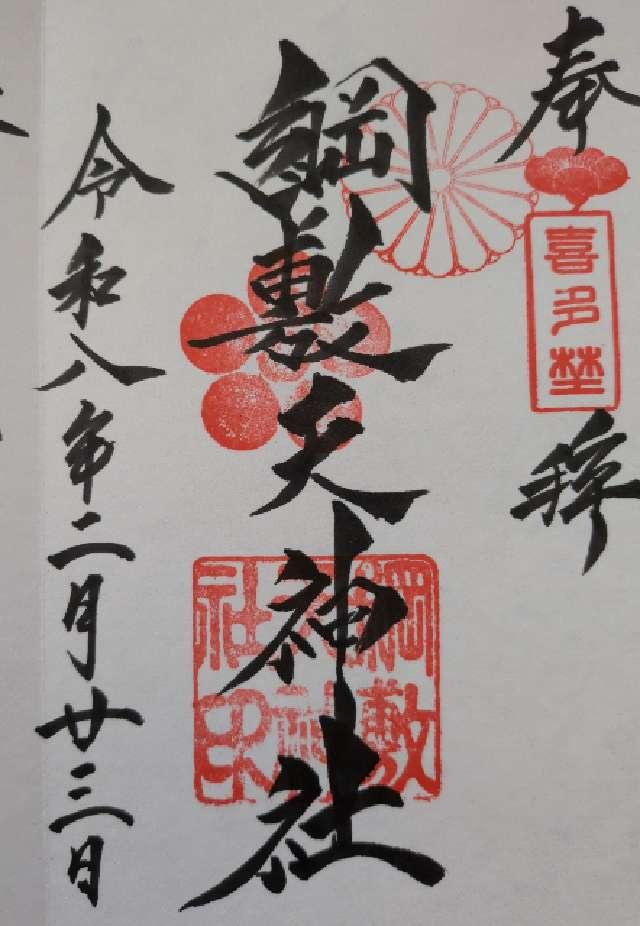 奉拝
喜多埜
綱敷天神社
綱敷天神社印
令和八年二月廿三日